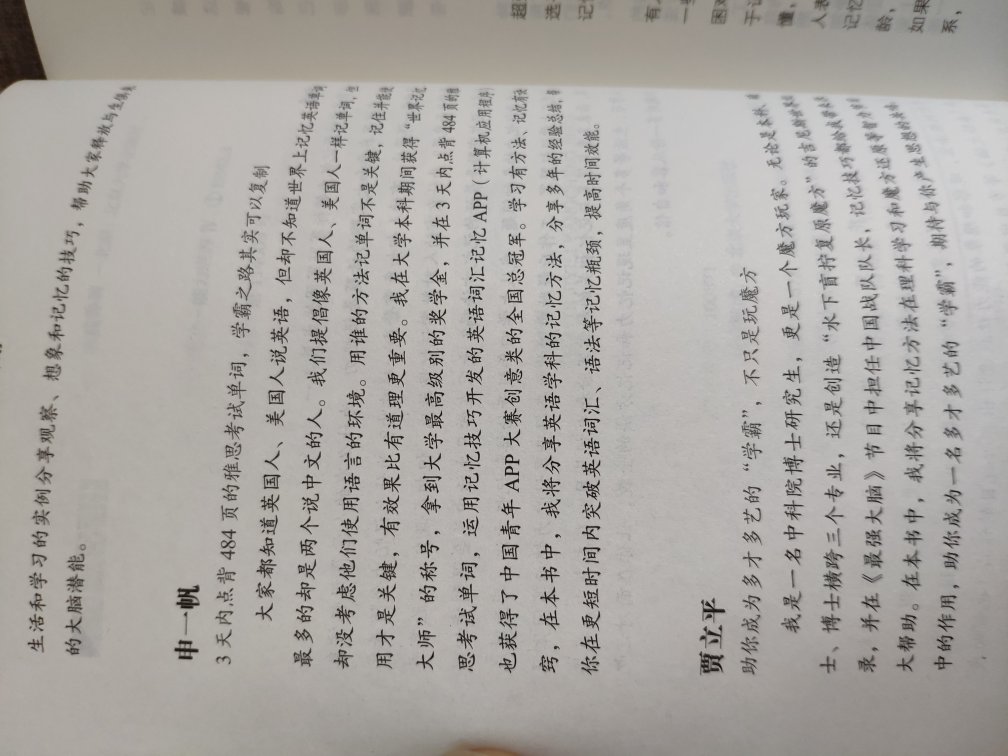 生活和学习的实例分享观察、想象和记忆的技巧，帮助大家释放与生俱来
的大脑潜能。
申一帆
3 天内点背 484 页的雅思考试单词，学霸之路其实可以复制
大家都知道英国人、美国人说英语，但却不知道世界上记忆英语单词
最多的却是两个说中文的人。我们提倡像英国人、美国人一样记单词，但
却没考虑他们使用语言的环境。用谁的方法记单词不是关键，记住并能使
用才是关键，有效果比有道理更重要。我在大学本科期间获得“世界记忆
大师”的称号，拿到大学最高级别的奖学金，并在 3 天内点背 484 页的雅
思考试单词，运用记忆技巧开发的英语词汇记忆 APP（计算机应用程序
也获得了中国青年 APP 大赛创意类的全国总冠军。学习有方法、记忆有诀
窍，在本书中，我将分享英语学科的记忆方法，分享多年的经验总结，
你在更短时间内突破英语词汇、语法等记忆瓶颈，提高时间效能。
贾立平
助你成为多才多艺的“学霸”，不只是玩魔方
我是一名中科院博士研究生，更是一个魔方玩家。无论是本科、硕
士、博士横跨三个专业，还是创造“水下盲拧复原魔方”的吉尼斯世界纪
录，并在《最强大脑》节目中担任中国战队队长，记忆技巧都给我带来
大帮助。在本书中，我将分享记忆方法在理科学习和魔方还原等智力
中的作用，助你成为一名多才多艺的“学霸”，期待与你产生思想的
超
选
记忆
有
一些
困难
于记
懂，
人表
记忆
龄，
如果
系，